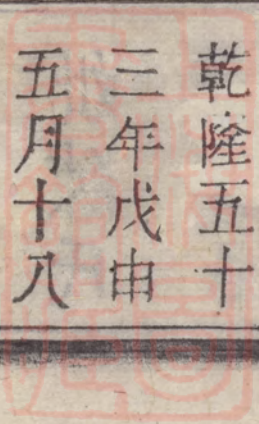 乾隆五十
三年戊由
五月十八